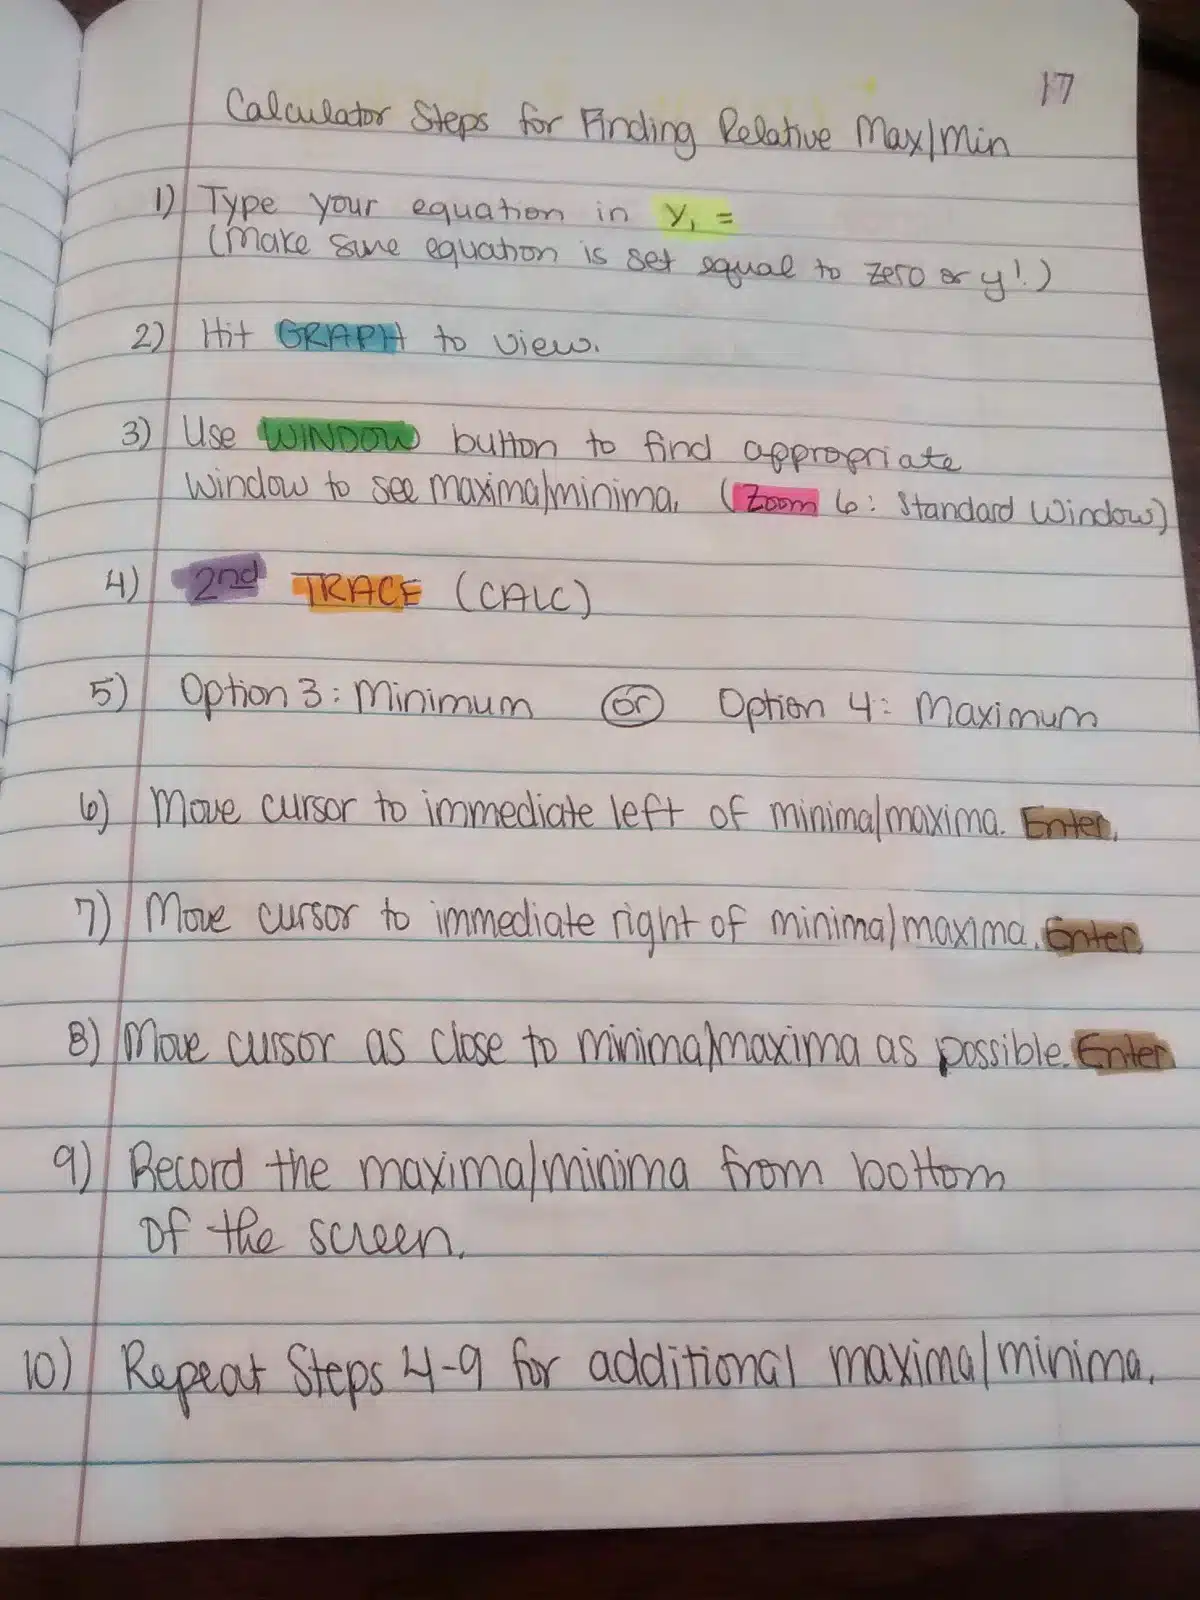 17
Calculator Steps for Finding Relative Max/Min
1) Type your equation in Y₁ =
(Make sure equation is set equal to zero or y!)
2) Hit GRAPH to view.
3) Use WINDOW button to find appropriate
window to see maxima/minima. (Zoom 6: Standard Window)
4) 2nd TRACE (CALC)
5) Option 3: Minimum or Option 4: Maximum
6) Move cursor to immediate left of minima/maxima. Enter.
7) Move cursor to immediate right of minima/maxima. Enter.
8) Move cursor as close to minima/maxima as possible. Enter
9) Record the maxima/minima from bottom
of the screen.
10) Repeat Steps 4-9 for additional maxima/minima.